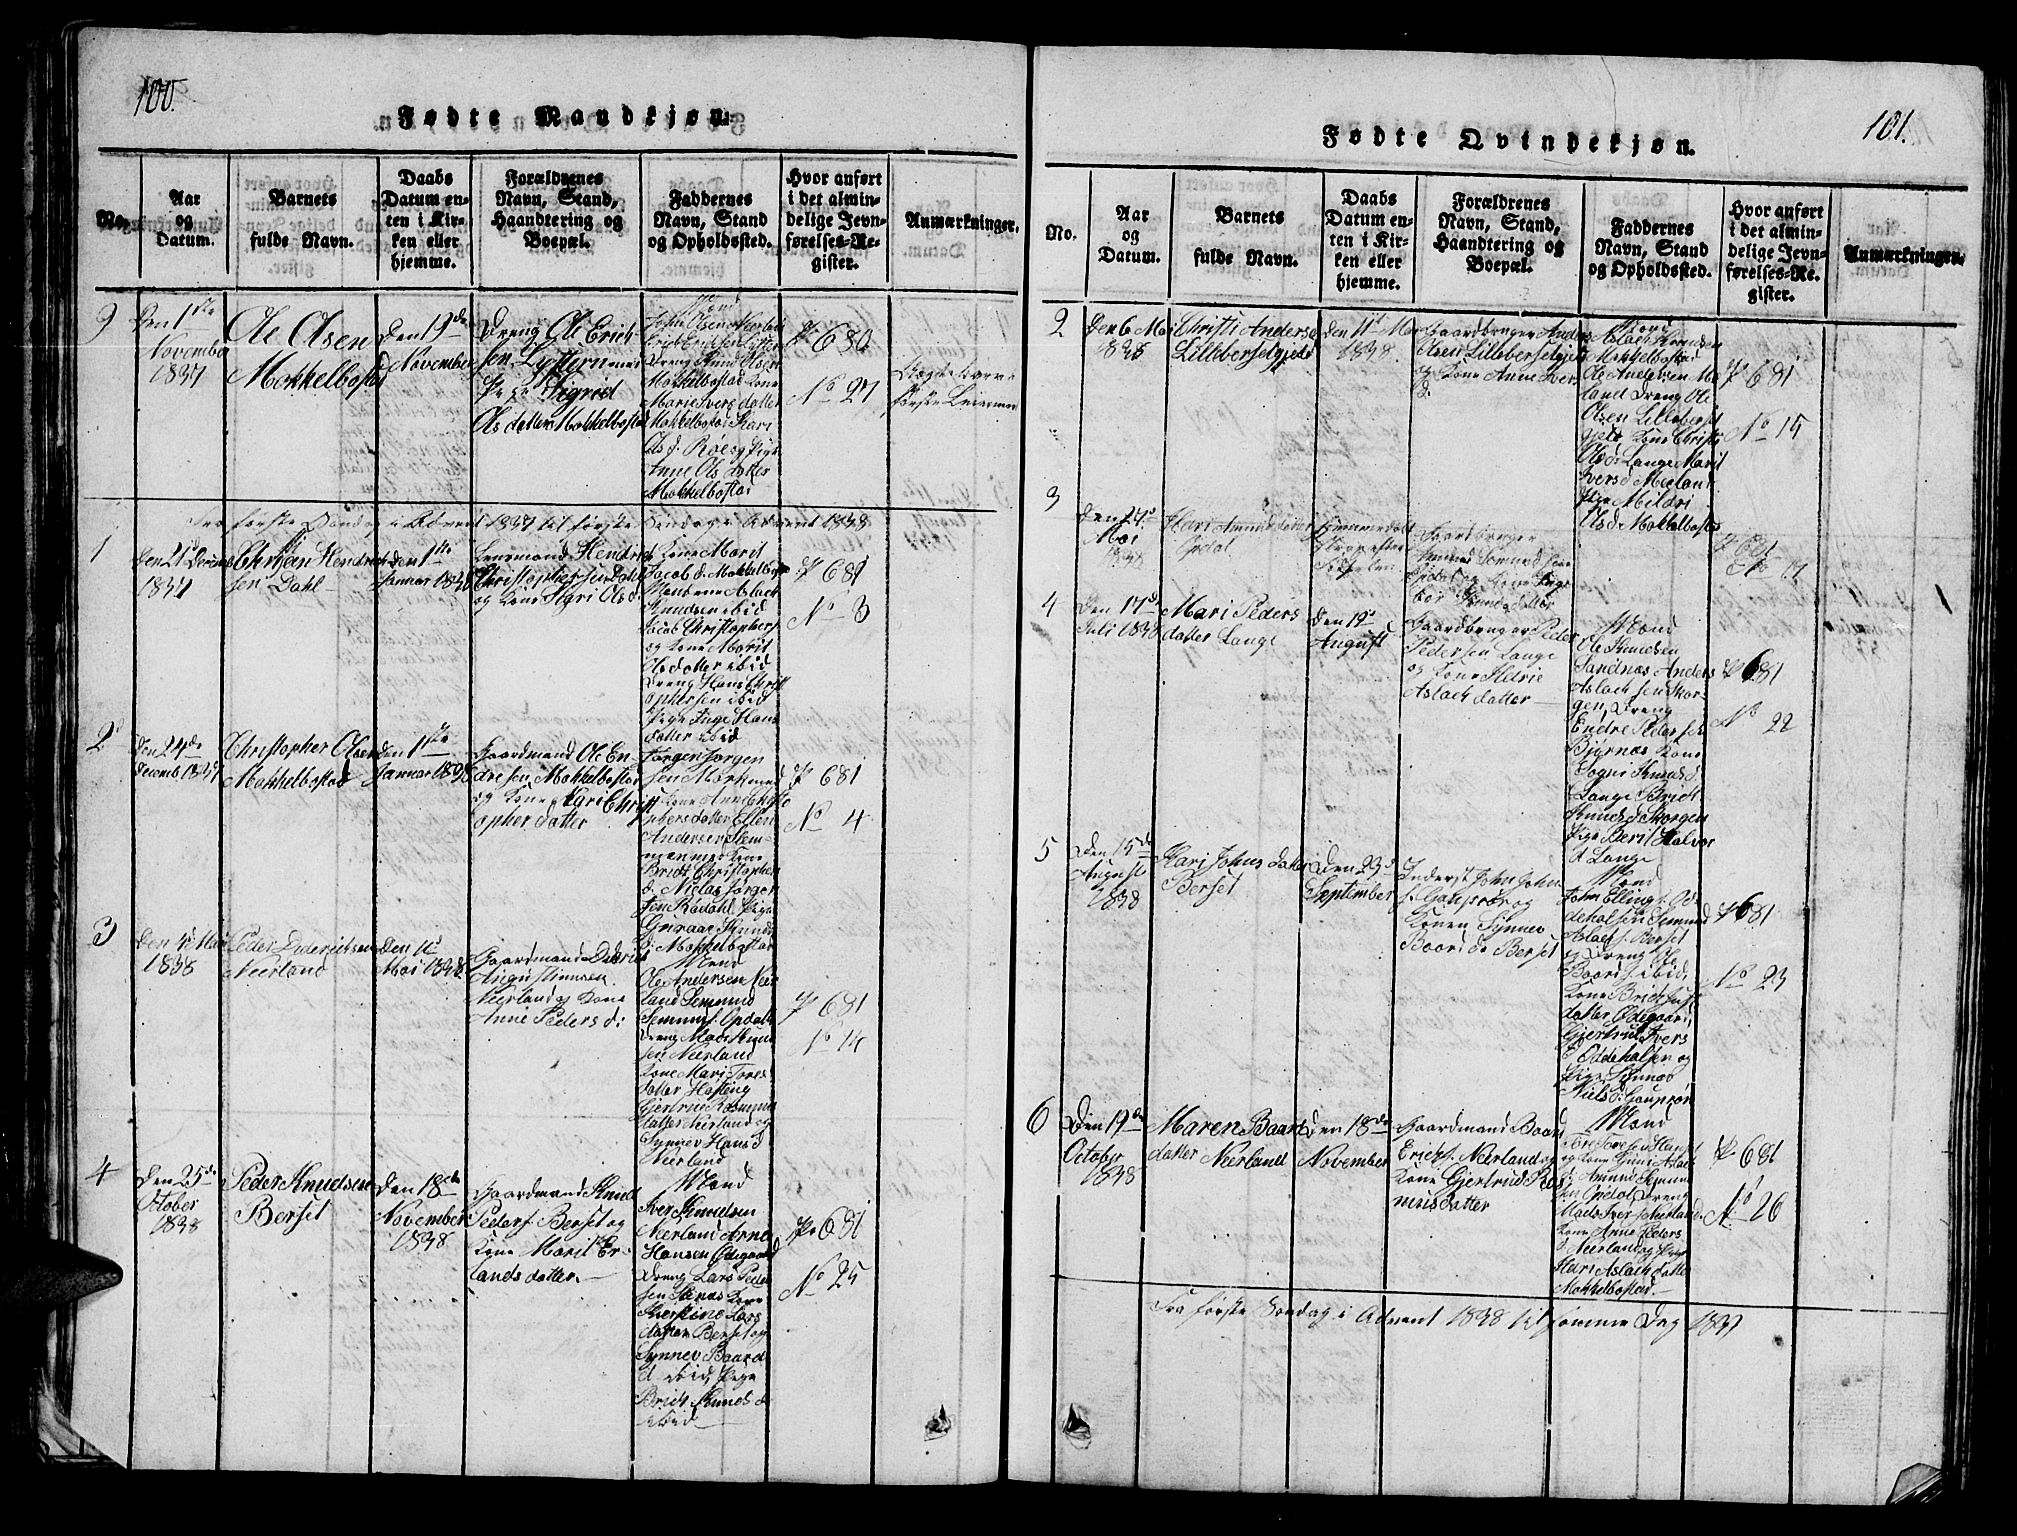 100.
Fødte Mandkjøn.
No.
Aar
og
Datum.
Barnets
fulde Navn.
Daabs
Datum en-
ten i Kir-
ken eller
hjemme.
Forældrenes
Navn, Stand,
Haandtering og
Boepæl.
Faddernes
Navn, Stand
og Opholdssted.
Hvor anført
i det almin-
delige Jevn-
førelses-Re-
gister.
Anmærkninger.
9
Den 1ste
November
1837
Ole Olsen
Mokkelbostad
Den 19de
November
Dreng Ole Erich-
sen
Pige Sigrid
Olsdatter Mokkelbostad
Mend
John Olsen Neerland
Dreng Knud Olsen
Mokkelbostad Kone
Marie Iversdatter
Mokkelbostad Kari
Ols d. Røes og Pige
Anne Olsdatter
Mokkelbostad
P 680
No 27
Begge deres
første Leiermaal
Fra første Søndag i Advent 1837 til første Søndag i Advent 1838
1
Den 21de Decemb
1837
Christian Hendrik-
sen Dahl
Den 1ste
Januar 1838
Lensmand Hendrich
Christophersen Dahl
og Kone Sigri Ols d.
Kone Marit
Jacob d. Mokkelbost
Mendene Aslach
Knudsen ibid
Jacob Christophers
og Kone Marit
Olsdatter ibid
Dreng Hans Christ
ophersen ibid
Pige Inge Hans
datter ibid
P 681
No 3
2
Den 24de
Decemb 1837
Christopher Olsen
Mokkelbostad
Den 1ste
Januar 1838
Gaardmand Ole En-
dresen Mokkelbostad
og Kone Kari Christ
opherdatter
Jørgen Jørgen
sen
Kone Anne Christo
phersdatter Ellen
Andersen
Kone
Bridt Christopher
d. Nielas Jørgen
sen Rødahl Pige
Guraae Knuds
d. Mokkelbostad
P 681
No 4
3
Den 4de Mai
1838
Peder Dideriksen
Neerland
Den
Mai 1838
Gaardmand Diderik
Augustinusen
Neerland og Kone
Anne Peders d:
Mænd
Ole Andersen Neer
land Semund
Semunds. Opdahl
Dreng Mads Knud
sen Neerland
Kone Mari Tores
datter
Gjertrud Rasmus
datter Neerland og
Synnev Hans d
Neerland
P 681
No 14
4
Den 25de
October
1838
Peder Knudsen
Berset
Den 18de
November
1838
Gaardmand Knud
Peders. Berset og
Kone Marit Er-
landsdatter.
Mænd
Iver Knudsen
Neerland Arne
Hansen Ødegaard
Dreng Lars Peder
sen Kone
Lars
datter Berset og
Synnev Baard
d ibid, Pige
Brith Knuds d
ibid
P 681
No 25
101.
Fødte Qvindekjøn.
No.
Aar
og
Datum.
Barnets
fulde Navn.
Daabs
Datum en-
ten i Kir-
ken eller
hjemme.
Forældrenes
Navn, Stand,
Haandtering og
Boepæl.
Faddernes
Navn, Stand
og Opholdssted.
Hvor anført
i det almin-
delige Jevn-
førelses-Re-
gister.
Anmærkninger.
2
Den 6 Mai
1838
Christi Anders d
Lillebersetgjeld
Den 11te Mai
1838.
Gaardbruger Anders
Olsen Lillebersetgjeld
og Kone Anne Ivers
d.
Mænd
Aslach Knudsen
Mokkelbostad
Ole Andersen Neer
land Dreng Ole
Olsen Lilleberset
gjeld, Kone Christi
Ols d: Lange Marit
Ivers d Neerland
Pige Mildri
Ols d Mokkelbostad
P 681
No 15
3
Den 24de
Mai
1838
Kari Amunddatter
Opdal
Hjemmedøbt
Gaardbruger
Amund Semundsen
Opdal og Kone Inge
bor Knudsdatter
P 681
No 17
4
Den 17de
Juli 1838
Mari Peders
datter Lange
Den 19de
August
Gaardbruger Peder
Pedersen Lange
og Kone
Aslachdatter
Mænd
Ole Knudsen
Sandnæs Anders
Aslachsen Skor-
gen, Dreng
Endre Pedersen
Bjørnaas Kone
Knuds d.
Lange Bridt
Knuds d Skorgen
Pige Berit Halvor
d Lange
P 681
No 22
5
Den 15de
August
1838
Kari Johnsdatter
Berset
Den 23de
September
Inderst John John
s. Gaupsør og
Konen Synnev
Baard d. Berset
Mænd
John Ellings. Od
dehalsen Semund
Aslachs. Berset
og Dreng Ole
Baards. ibid.
Kone Brith
datter Ødegaard,
Gjertrud Ivers
d. Oddehalsen og
Pige
Niels d. Gaupsør
P 681
No 23
6
Den 19de
October
1838
Maren Baards
datter Neerland
Den 18de
November
Gaardmand Baard
Erichs. Neerland og
Kone Gjertrud Ras
musdatter
Mænd
Amund Semund
sen Opdal Dreng
Mads Ivers Neerland
Kone Anne Peders
d. Neerland og Pige
Kari Aslachdatter
Mokkelbostad.
P 681
No 26
Fra første Søndag i Advent 1838 til samme Dag 1839